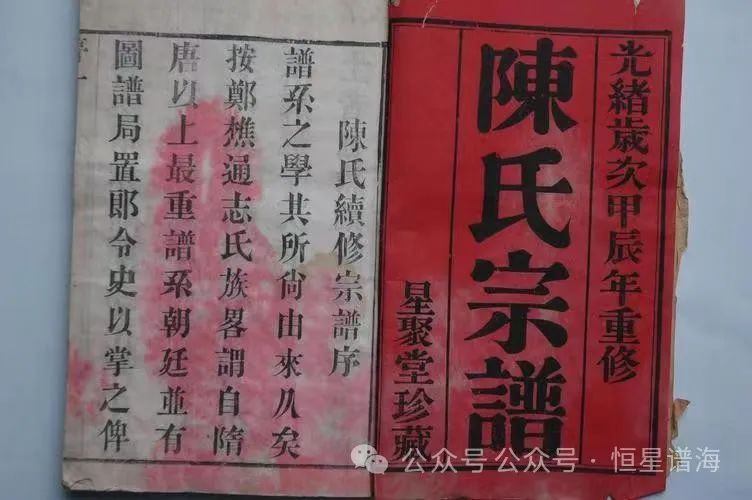 光緒歲次甲辰年重修
陳氏宗譜
星聚堂珍藏
陳氏續修宗譜序
譜系之學其所尙由來久矣
按鄭樵通志氏族畧謂自隋
唐以上最重譜系朝廷並有
圖譜局置郎令史以掌之俾
公众号 公众号 · 恒星谱海